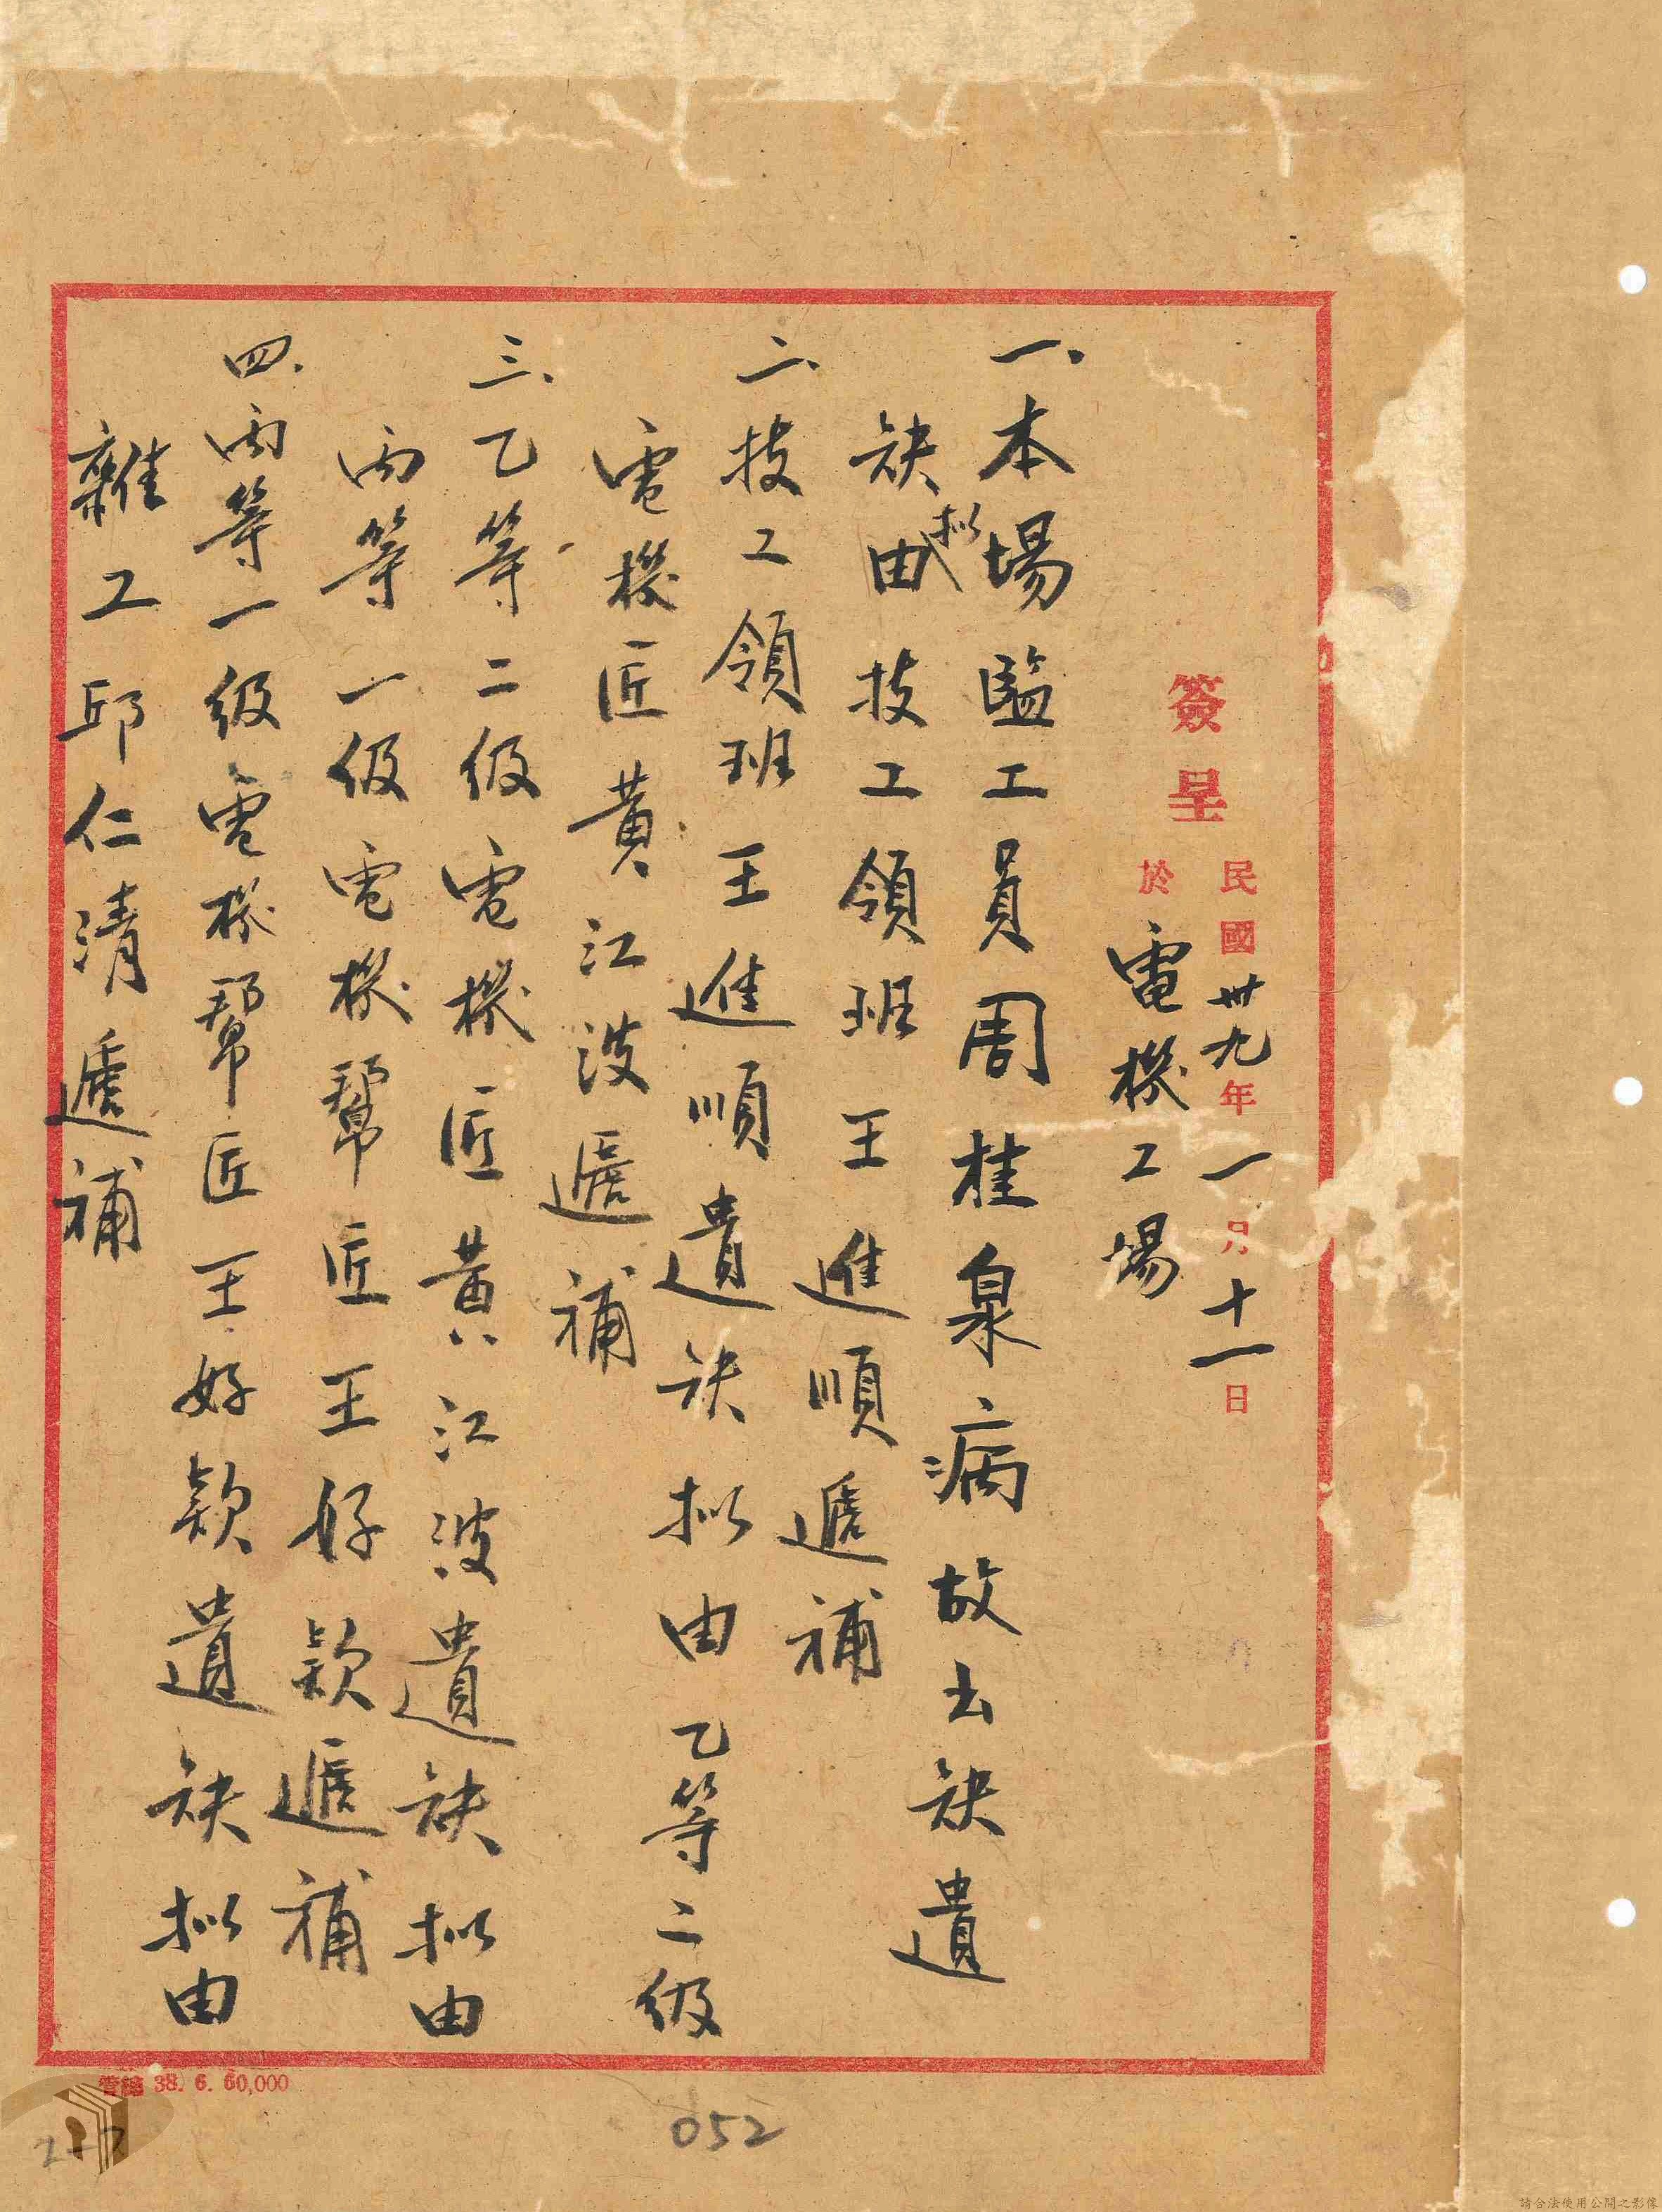 簽呈
民國卅九年一月十一日
於電機工場
一、本場監工員周桂泉病故去缺遺
缺擬由技工領班王進順遞補
二、技工領班王進順遺缺拟由乙等二級
電機匠黃江波遞補
三、乙等二級電機匠黃江波遺缺拟由
丙等一級電機幫匠王好款遞補
四、丙等一級電機幫匠王好款遺缺拟由
雜工邱仁清遞補
38. 6. 60,000
052
請合法使用公開之影像